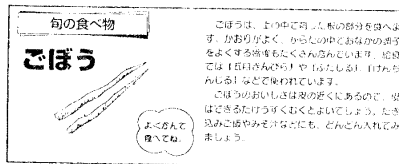 旬の食べ物
ごぼう
よくかんで
食べてね。
ごぼうは、土の中で育った根の部分を食べま
す。かおりがよく、からだの中でおなかの調子
をよくする
では
んじる」などで使われています。
ごぼうのおいしさは皮の近くにあるので、皮
はできるだけうすくむくとよいでしょう。たき
込みご飯やみそ汁などにも、どんどん入れてみ
ましょう。